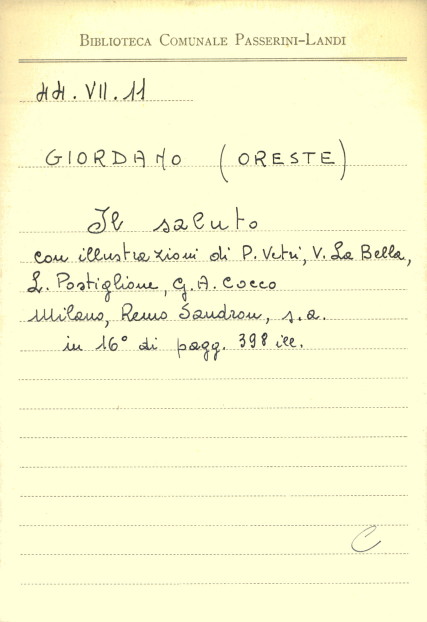 BIBLIOTECA COMUNALE PASSERINI-LANDI
44.VII.11
GIORDANO (ORESTE)
Il saluto
con illustrazioni di P. Vetri, V. La Bella,
L. Postiglione, G. A. Cocco
Milano, Remo Sandron, s.a.
in 16° di pagg. 398 ill.
C